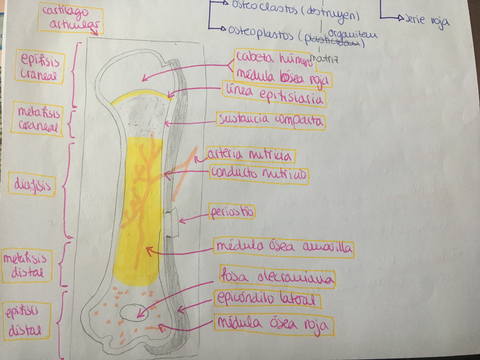 cartílago
articular
osteoclastos (destruyen)
organizan
osteoplastos (plasticidad)
matriz
serie roja
epífisis
craneal
metáfisis
craneal
diáfisis
metáfisis
distal
epífisis
distal
cabeza húmero
médula ósea roja
línea epifisiaria
sustancia compacta
arteria nutricia
conducto nutricio
periostio
médula ósea amarilla
fosa olecraniana
epicóndilo lateral
médula ósea roja